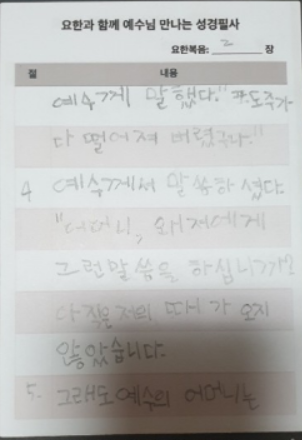 요한과 함께 예수님 만나는 성경필사
요한복음: 2 장
절 내용
예수께 말했다." 포도주가
다 떨어져 버렸구나."
4 예수께서 말씀하셨다.
"어머니, 왜 저에게
그런 말씀을 하십니까?
아직은 저의 때가 오지
않았습니다.
5. 그래도 예수의 어머니는